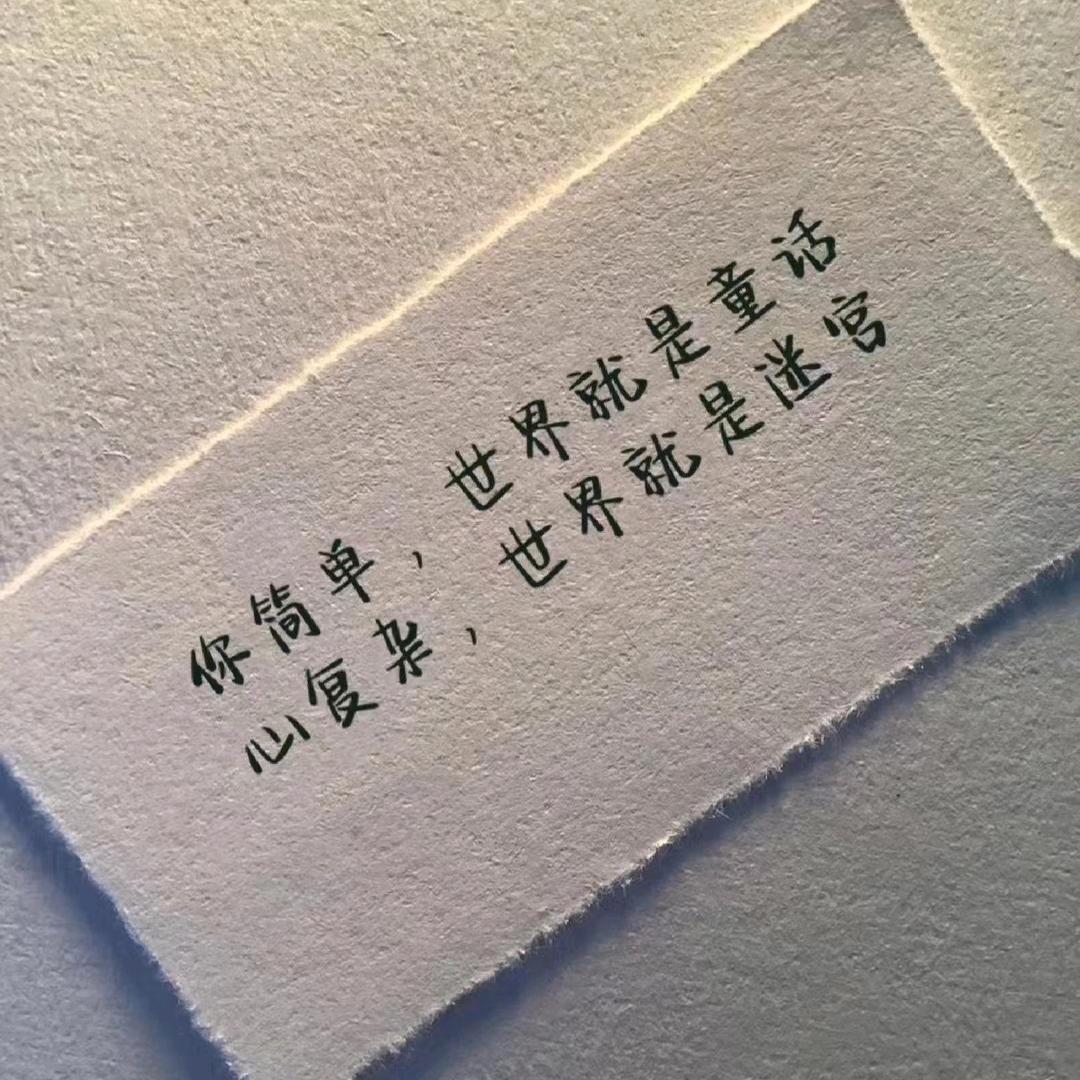 你简单，世界就是童话
心复杂，世界就是迷宫